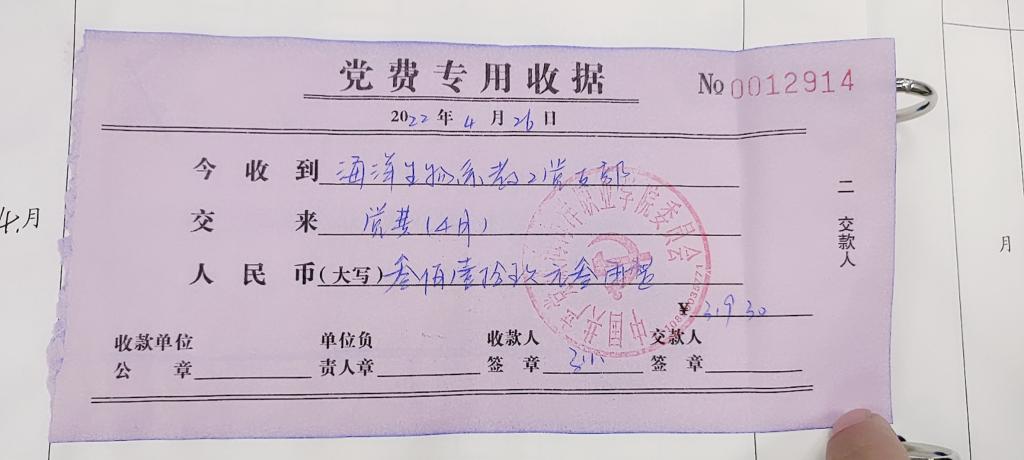 党费专用收据
No 0012914
2022 年 4 月 26 日
今收到 海洋生物系教工党支部
交来 党费(4月)
人民币(大写) 叁佰壹拾玖元叁角整
¥ 319.30
收款单位 公章
单位负责人章
收款人签章
交款人签章
二 交款人
中国共产党 职业学院委员会
4.月
月